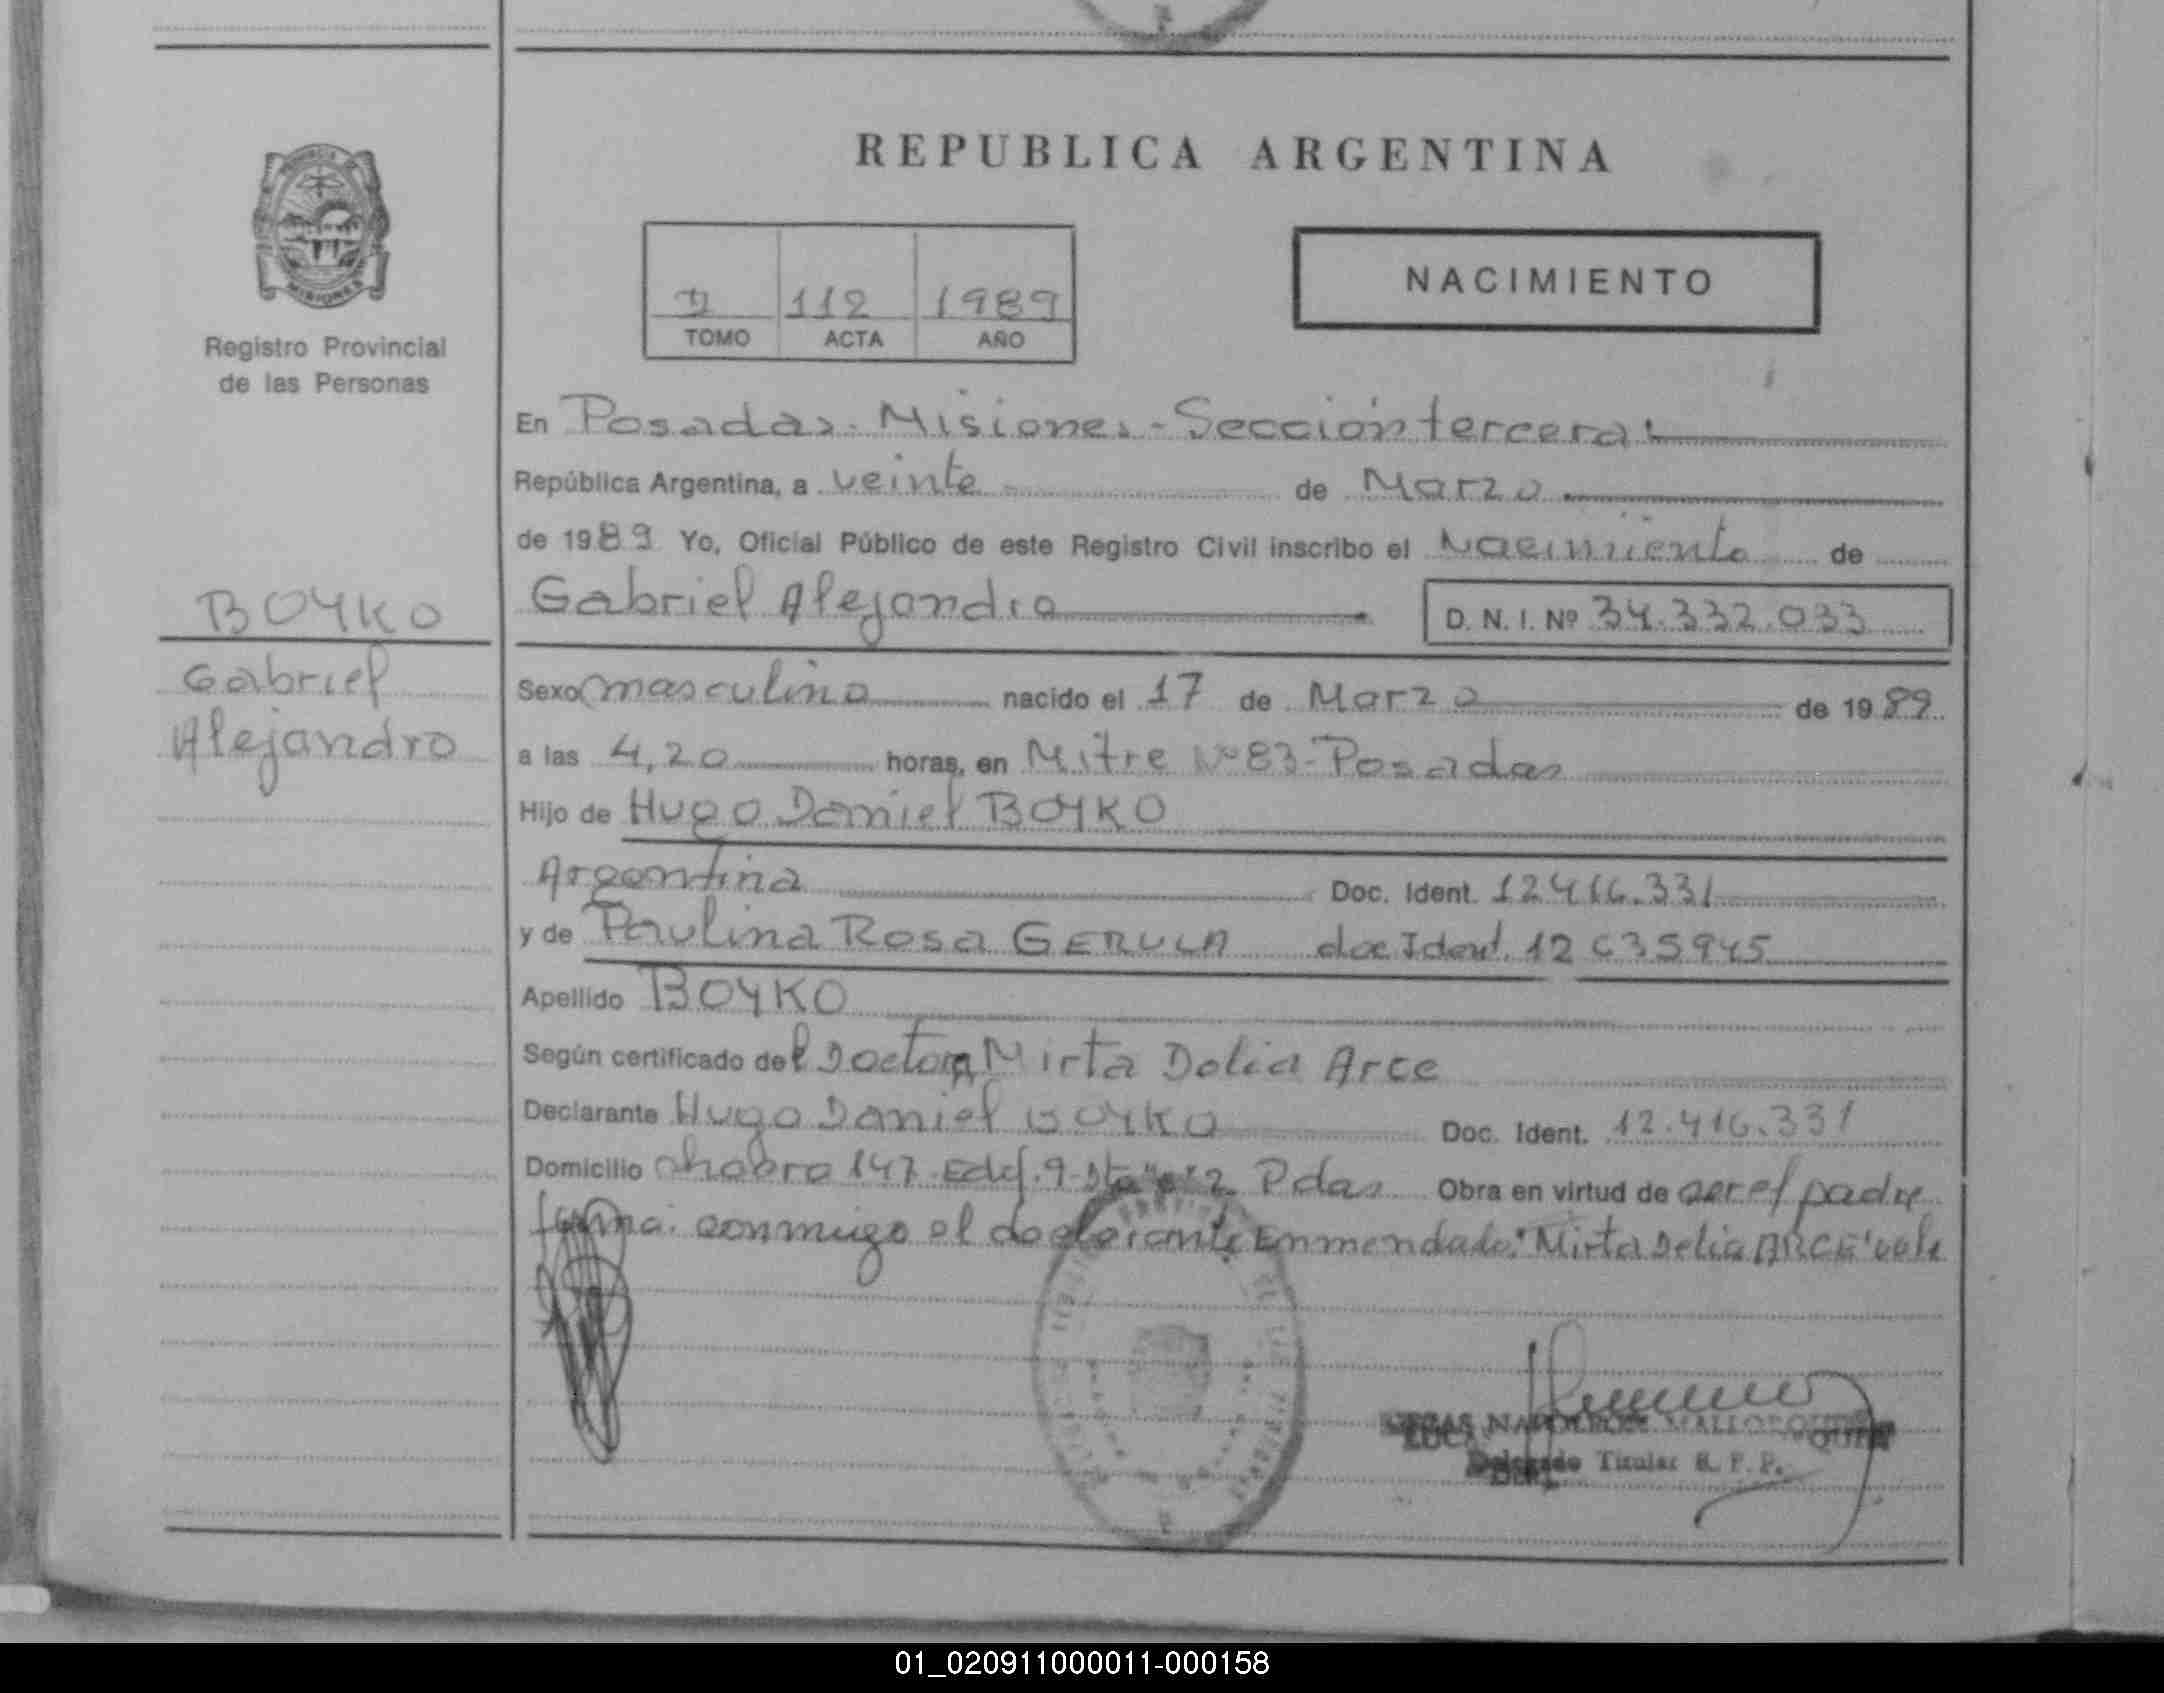 REPUBLICA ARGENTINA
MISIONES
Registro Provincial
de las Personas
112 1989
TOMO ACTA AÑO
NACIMIENTO
En Posadas - Misiones - Sección tercera
República Argentina, a veinte de Marzo
de 1989 Yo, Oficial Público de este Registro Civil inscribo el Nacimiento de
Gabriel Alejandro D. N. I. Nº 34.332.033
BOYKO
Gabriel
Alejandro
Sexo masculino nacido el 17 de Marzo de 1989
a las 4,20 horas, en Mitre Nº 83 - Posadas
Hijo de Hugo Daniel BOYKO
Argentina Doc. Ident. 12416.331
y de Paulina Rosa GERULA doc Ident. 12635945
Apellido BOYKO
Según certificado del Doctora Mirta Delia Arce
Declarante Hugo Daniel BOYKO Doc. Ident. 12.416.331
Domicilio 147 Edif. 9 2 Pdas Obra en virtud de ser el padre
firma conmigo el declarante Enmendado: "Mirta Delia ARCE" vale
LUCAS NAPOLEON
Delegado Titular R. P. P.
01_020911000011-000158